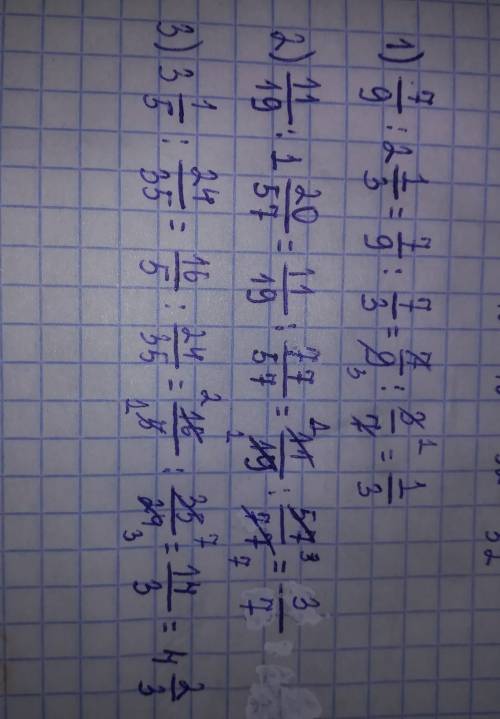 1) 7/9 : 2 1/3 = 7/9 : 7/3 = 7/9 3 : 3 1/7 = 1/3
2) 11/19 : 1 20/57 = 11/19 : 77/57 = 1 11/19 1 : 57 3/77 7 = 3/7
3) 3 1/5 : 24/35 = 16/5 : 24/35 = 2 16/5 1 : 35 7/24 3 = 14/3 = 4 2/3